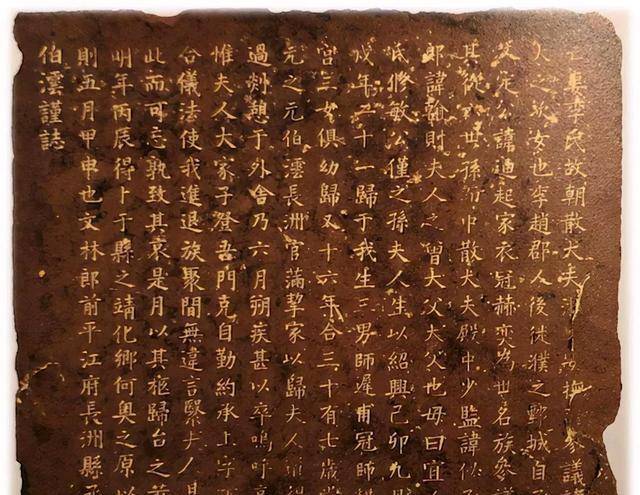 亡妻李氏故朝散大夫 撫 參議
女之 汝也李趙郡人後徙濮之鄄城自
文定公諱迪起家衣冠赫奕為世名族參
其從 世孫 中散大夫殿中少監諱
郎諱 則夫人之曾大父大父也母曰宜
氏修敏公僅之孫夫人生以紹興己卯九月
戌年二十一歸于我生三男師遲甫冠師
宫三女俱幼歸又十六年合三十有七歲
元之元伯澐長洲官滿挈家以歸夫人
過 憩于外舍乃六月朔疾甚以卒嗚呼
惟夫人大家子登吾門克自勤約承上
合儀法使我進退族聚間無違言繄夫人
此而可忘孰致其哀是月以其柩歸台之黃
明年丙辰得卜于縣之靖化鄉何奧之原以
則五月甲申也文林郎前平江府長洲縣丞
伯澐謹誌